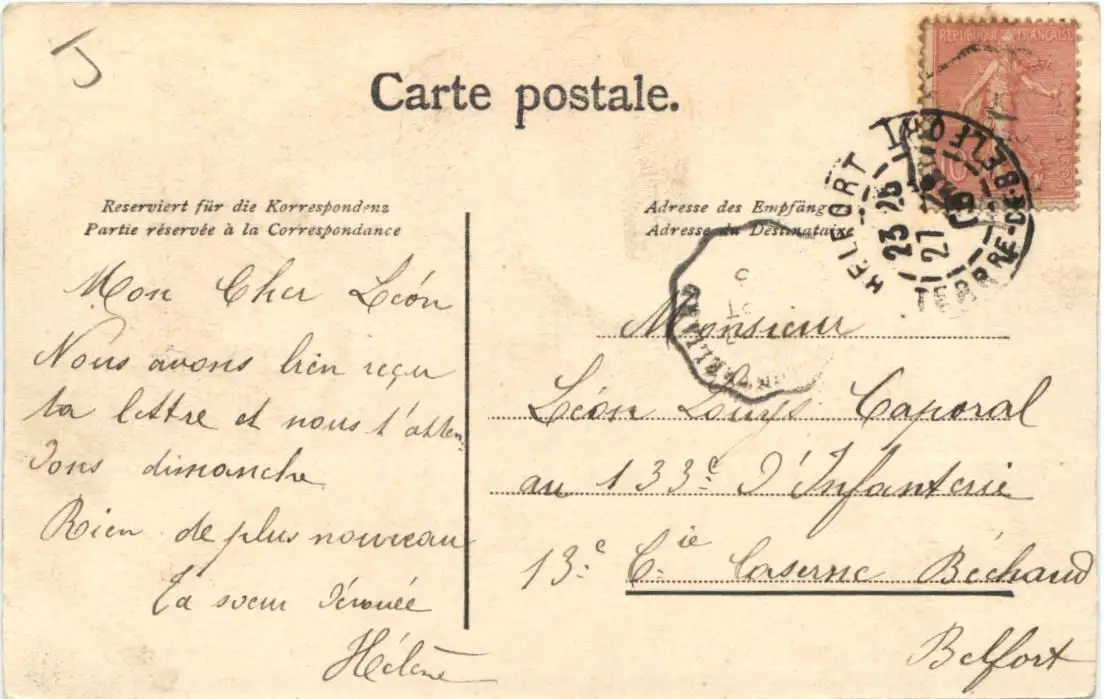 Carte postale.
RÉPUBLIQUE FRANÇAISE
Reserviert für die Korrespondenz
Partie réservée à la Correspondance
Adresse des Empfäng
Adresse du Destinataire
BELFORT
23 25
27
TERRE-DE-BELFORT
Mon Cher Léon
Nous avons bien reçu
ta lettre et nous t'atten-
dons dimanche
Rien de plus nouveau
Ta soeur dévouée
Hélène
Monsieur
Léon Louys Caporal
au 133e d'Infanterie
13e Cie Caserne Béchaud
Belfort